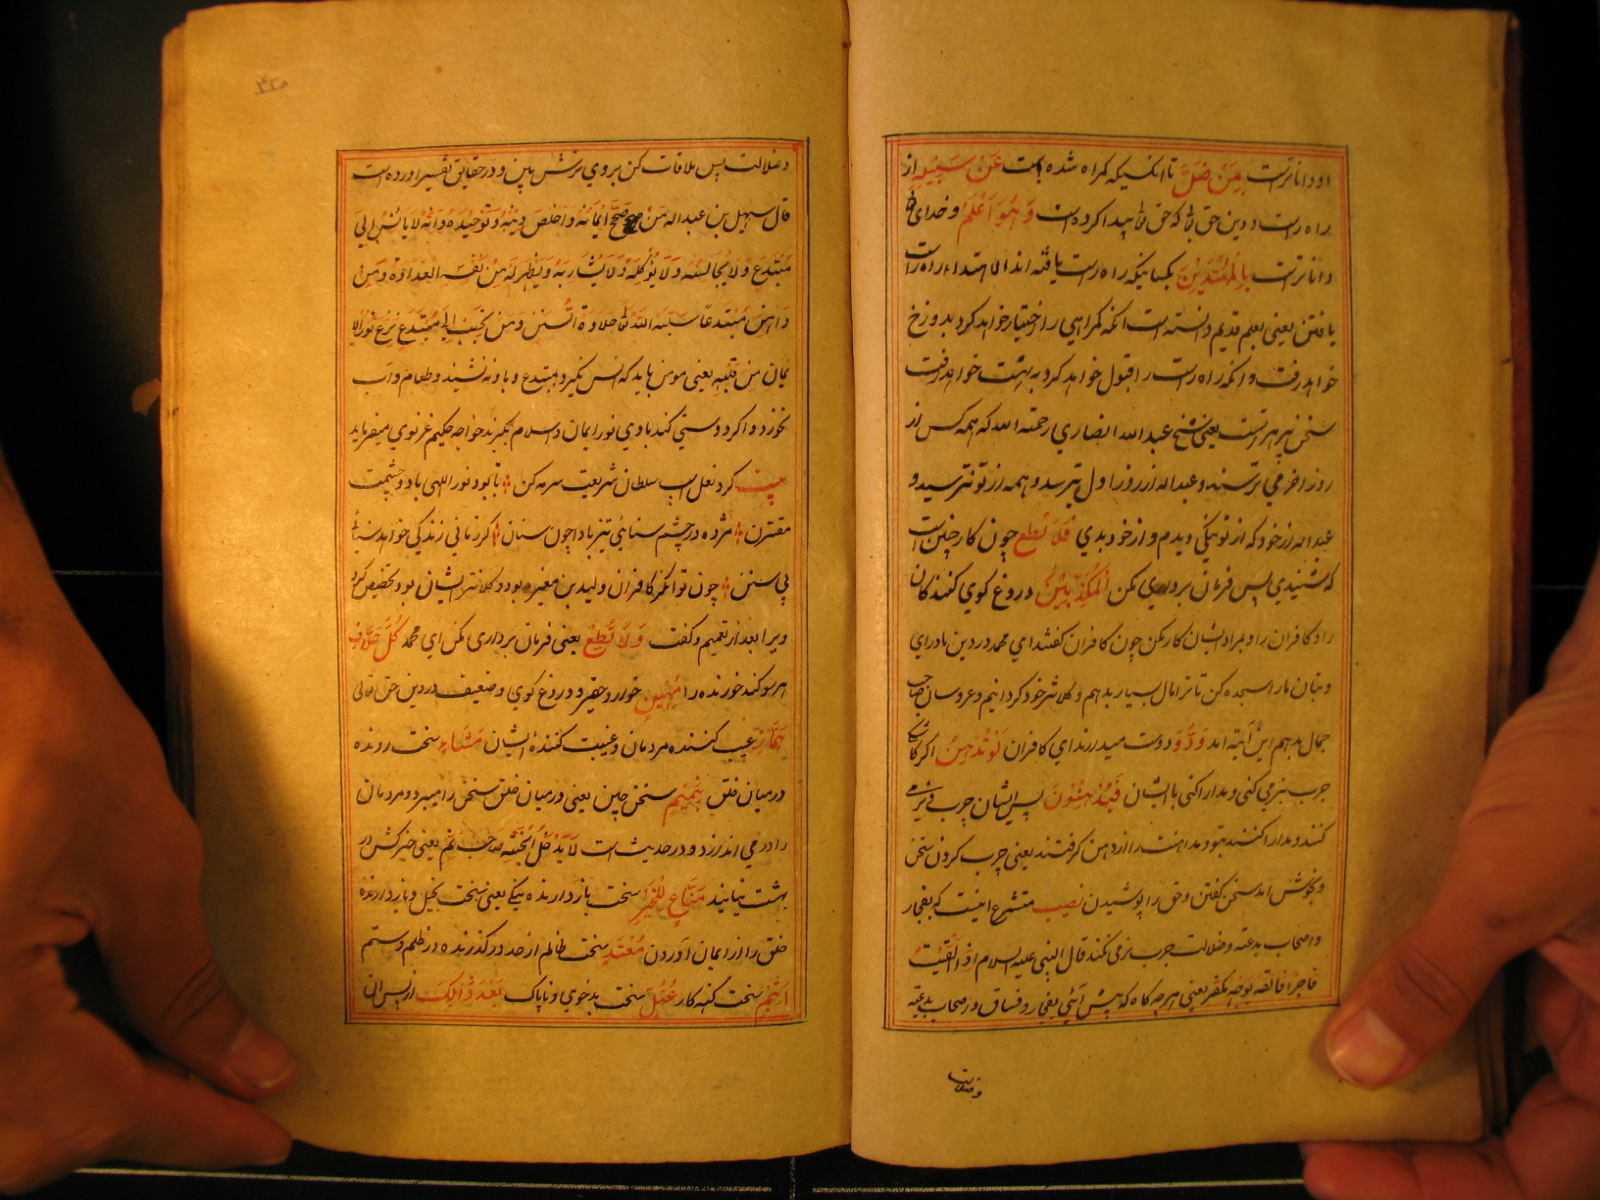 او داناترست بِمَنْ ضَلَّ تا انكسیکه کمراه شده است عَنْ سَبِیْلِهِ از
راه راست و دین حق تع که حق تع پیدا کرده است وَ هُوَ اَعْلَمُ و خدای تع
داناترست بِالْمُهْتَدِیْنَ بکسانیکه راه راست یافته اند الاهتداء راه راست
یافتن یعنی بعلم قدیم دانسته است انکه کمراهی را اختیار خواهد کرد بدوزخ
خواهد رفت و انکه راه راست را قبول خواهد کرد به بهشت خواهد رفت
سخن پیر هرتست یعنی شیخ عبد الله انصاری رحمته الله که همه کس از
روز اخر می ترسند و عبد الله از روز اول بترسد و همه از تو بترسید و
عبد الله از خود که از تو نیکی دیدم و از خود بدی فَلَا تُطِعِ چون کار چنین است
که شنیدی پس فرمان برداری مکن الْمُکَذِّبِیْنَ دروغ کوی کنندکان
را و کافران را و بمراد ایشان کار مکن چون کافران کفتند ای محمد در دین ما درای
و بتان ما را سجده کن تا ترا مال بسیار بدهم و کلانتر خود کردانیم و عروسان صاحب
جمال بدهم این آیته امد وَدُّوْ دوست میدارند ای کافران لَوْ تُدْهِنُ اکر
چرب نرمی کنی و مدارا کنی با ایشان فَیُدْهِنُوْنَ پس ایشان چرب و نرمی
کنند و مدارا کنند بتو و مداهنت را از دهن کرفتند یعنی چرب کردن سخن
و بخوش امد سخن کفتن و حق را پوشیدن نصیب متشرع اینست که بفجار
و اصحاب بدعته و ضلالت چرب نرمی نکند قال النبی علیه السلام اذا لَقِیْتَ
فَاجِرًا فالقه بوجه مکفر یعنی هر چه کاه که پیش آیی بفجار و فساق و اصحاب بدعته
و ضلالت
۴۳۵
و ضلالت پس ملاقات کن بروی ترش باین و در حقایق تفسیر اورده است
قال سهیل بن عبد الله مَنْ صَحَّ اِیْمَانَهُ وَ اَخْلَصَ دِیْنَهُ وَ تَوْحِیْدَهُ فَانَّهُ لَا یَانَسُ اِلٰی
مُبْتَدِعٍ وَ لَا یُجَالِسُهُ وَ لَا یُوَکِلُهُ وَ لَا یُشَارِبَهُ وَ یَظْهَرُ لَهُ مِنْ نَفْسِهِ الْعَدَاوَةَ وَ مَنْ
دَاهَنَ مُبْتَدِعًا سَلَبَهُ اللهُ تع حَلَاوَةَ السُّنَنِ وَ مَنْ یُحِبُّ اِلٰی مُبْتَدِعٍ نُزِعَ نُوْرُ الْا
یْمَانِ مِنْ قَلْبِهِ یعنی مومن باید که انس نکیرد بمبتدع و با و نه نشیند و طعام و آب
نخورد و اکر دوستی کند با وی نور ایمان و اسلام بکیرند خواجه حکیم غزنوی میفرماید
بیت کرد نعل اسپ سلطان شریعت سرمه کن تا بود نور الهی با دو چشمت
مقترن مژه در چشم سنایی تیز بادا چون سنان کر زمانی زندکی خواهد سنائی
بی سنن چون توانکر کافران ولید بن مغیره بود و کلانتر ایشان بود تخصیص کرد
ویرا بعد از تعمیم و کفت وَلَا تُطِعْ یعنی فرمان برداری مکن ای محمد کُلَّ حَلَّافٍ
هر سوکند خورنده را مَّهِیْنٍ خورد و حقیر و دروغ کوی و ضعیف در دین حق تعالی
هَمَّازٍ عیب کننده مردمان و غیبت کننده ایشان مَشَّاءٍ سخت رونده
در میان خلق بِنَمِیْمٍ سخن چین یعنی در میان خلق سخن را میبرد و مردمان
را در می اندازد و در حدیث است لَا یَدْخُلُ الْجَنَّةَ صاحب نم یعنی خبرکش در
بهشت نیانید مَنَّاعٍ لِلْخَیْرِ سخت باز دارنده نیکی یعنی سخت بخیل و باز دارنده
خلق را از ایمان اوردن مُعْتَدٍ سخت ظالم از حد در کذرنده در ظلم و ستم
اَثِیْمٍ سخت کنه کار عُتُلٍّ سخت بدخوی و ناپاک بَعْدَ ذَالِکَ از پس ان